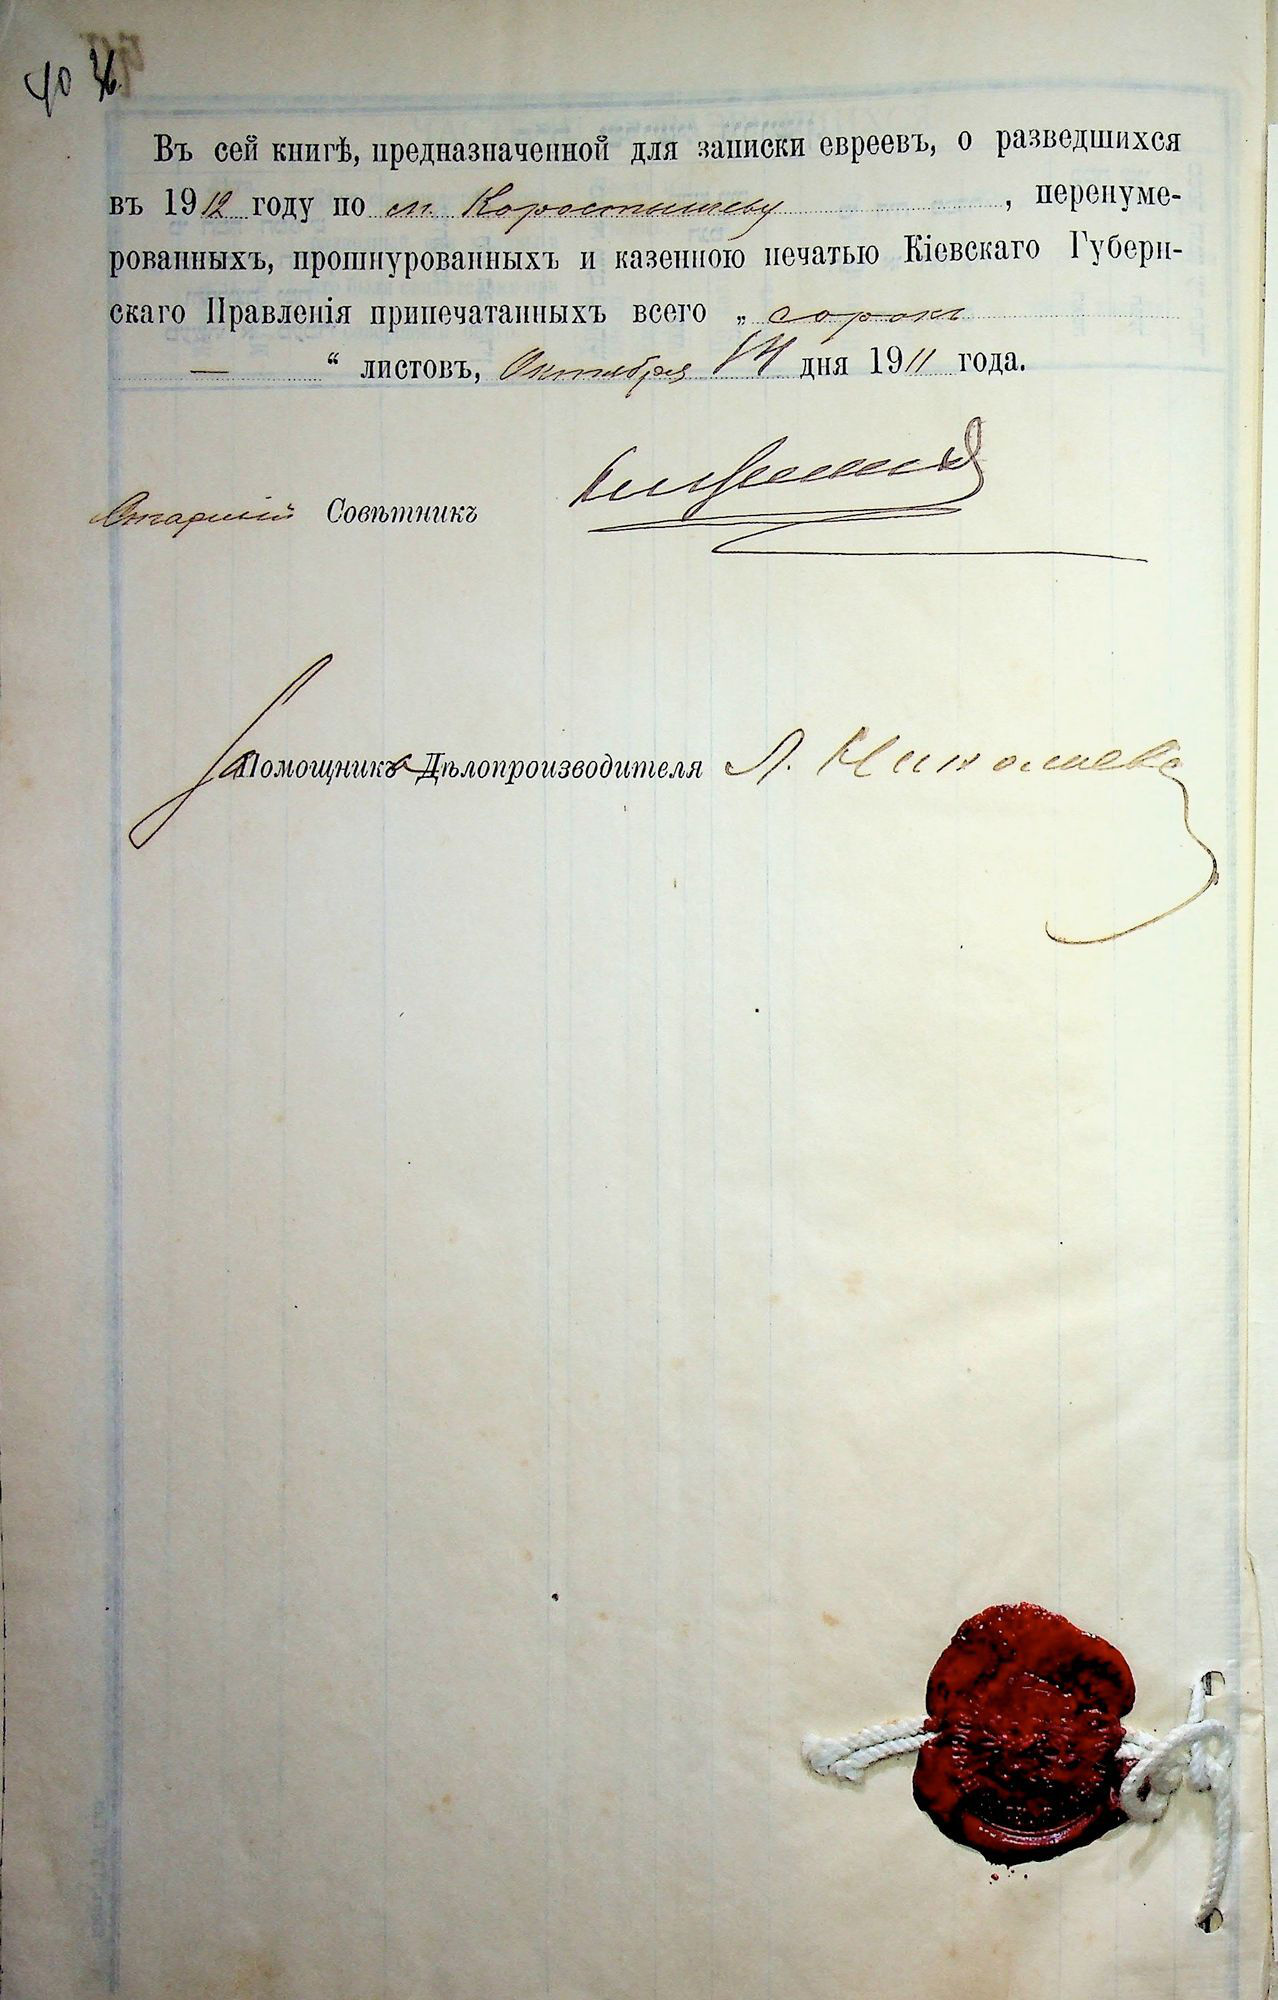 40 36.
Въ сей книгѣ, предназначенной для записки евреевъ, о разведшихся
въ 1912 году по м. Коростышеву, перенуме-
рованныхъ, прошнурованныхъ и казенною печатью Кіевскаго Губерн-
скаго Правленія припечатанныхъ всего „ сорокъ
— “ листовъ, Октября 14 дня 1911 года.
Старшій Совѣтникъ
Помощникъ Дѣлопроизводителя Л. Николаевъ